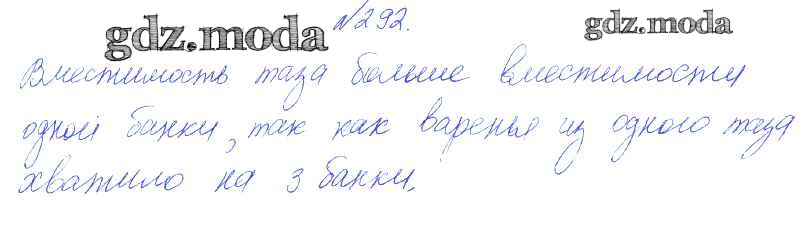 gdz.moda №292. gdz.moda
Вместимость таза больше вместимости
одной банки, так как варенья из одного таза
хватило на 3 банки.